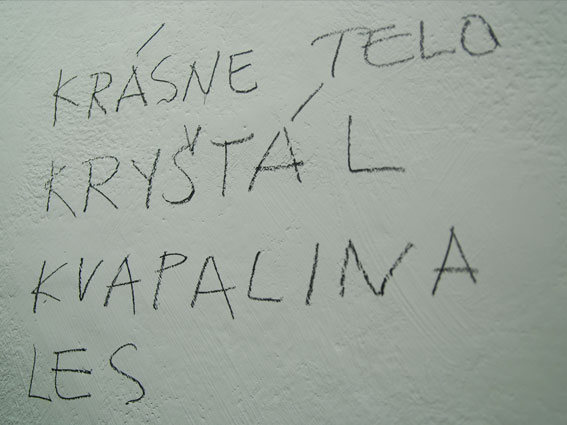 KRÁSNE TELO
KRYŠTÁL
KVAPALINA
LES